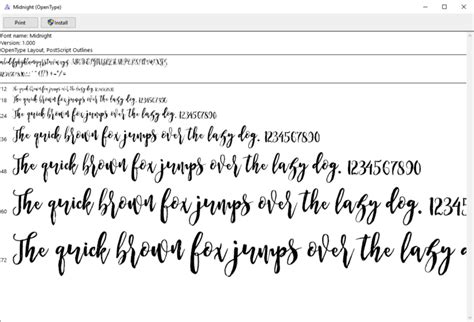 Midnight (OpenType)
Print Install
Font name: Midnight
Version: 1.000
OpenType Layout, PostScript Outlines
12 The quick brown fox jumps over the lazy dog. 1234567890
18 The quick brown fox jumps over the lazy dog. 1234567890
24 The quick brown fox jumps over the lazy dog. 1234567890
36 The quick brown fox jumps over the lazy dog. 1234567890
48 The quick brown fox jumps over the lazy dog. 1234567890
60 The quick brown fox jumps over the lazy dog. 12345
72 The quick brown fox jumps over the lazy d